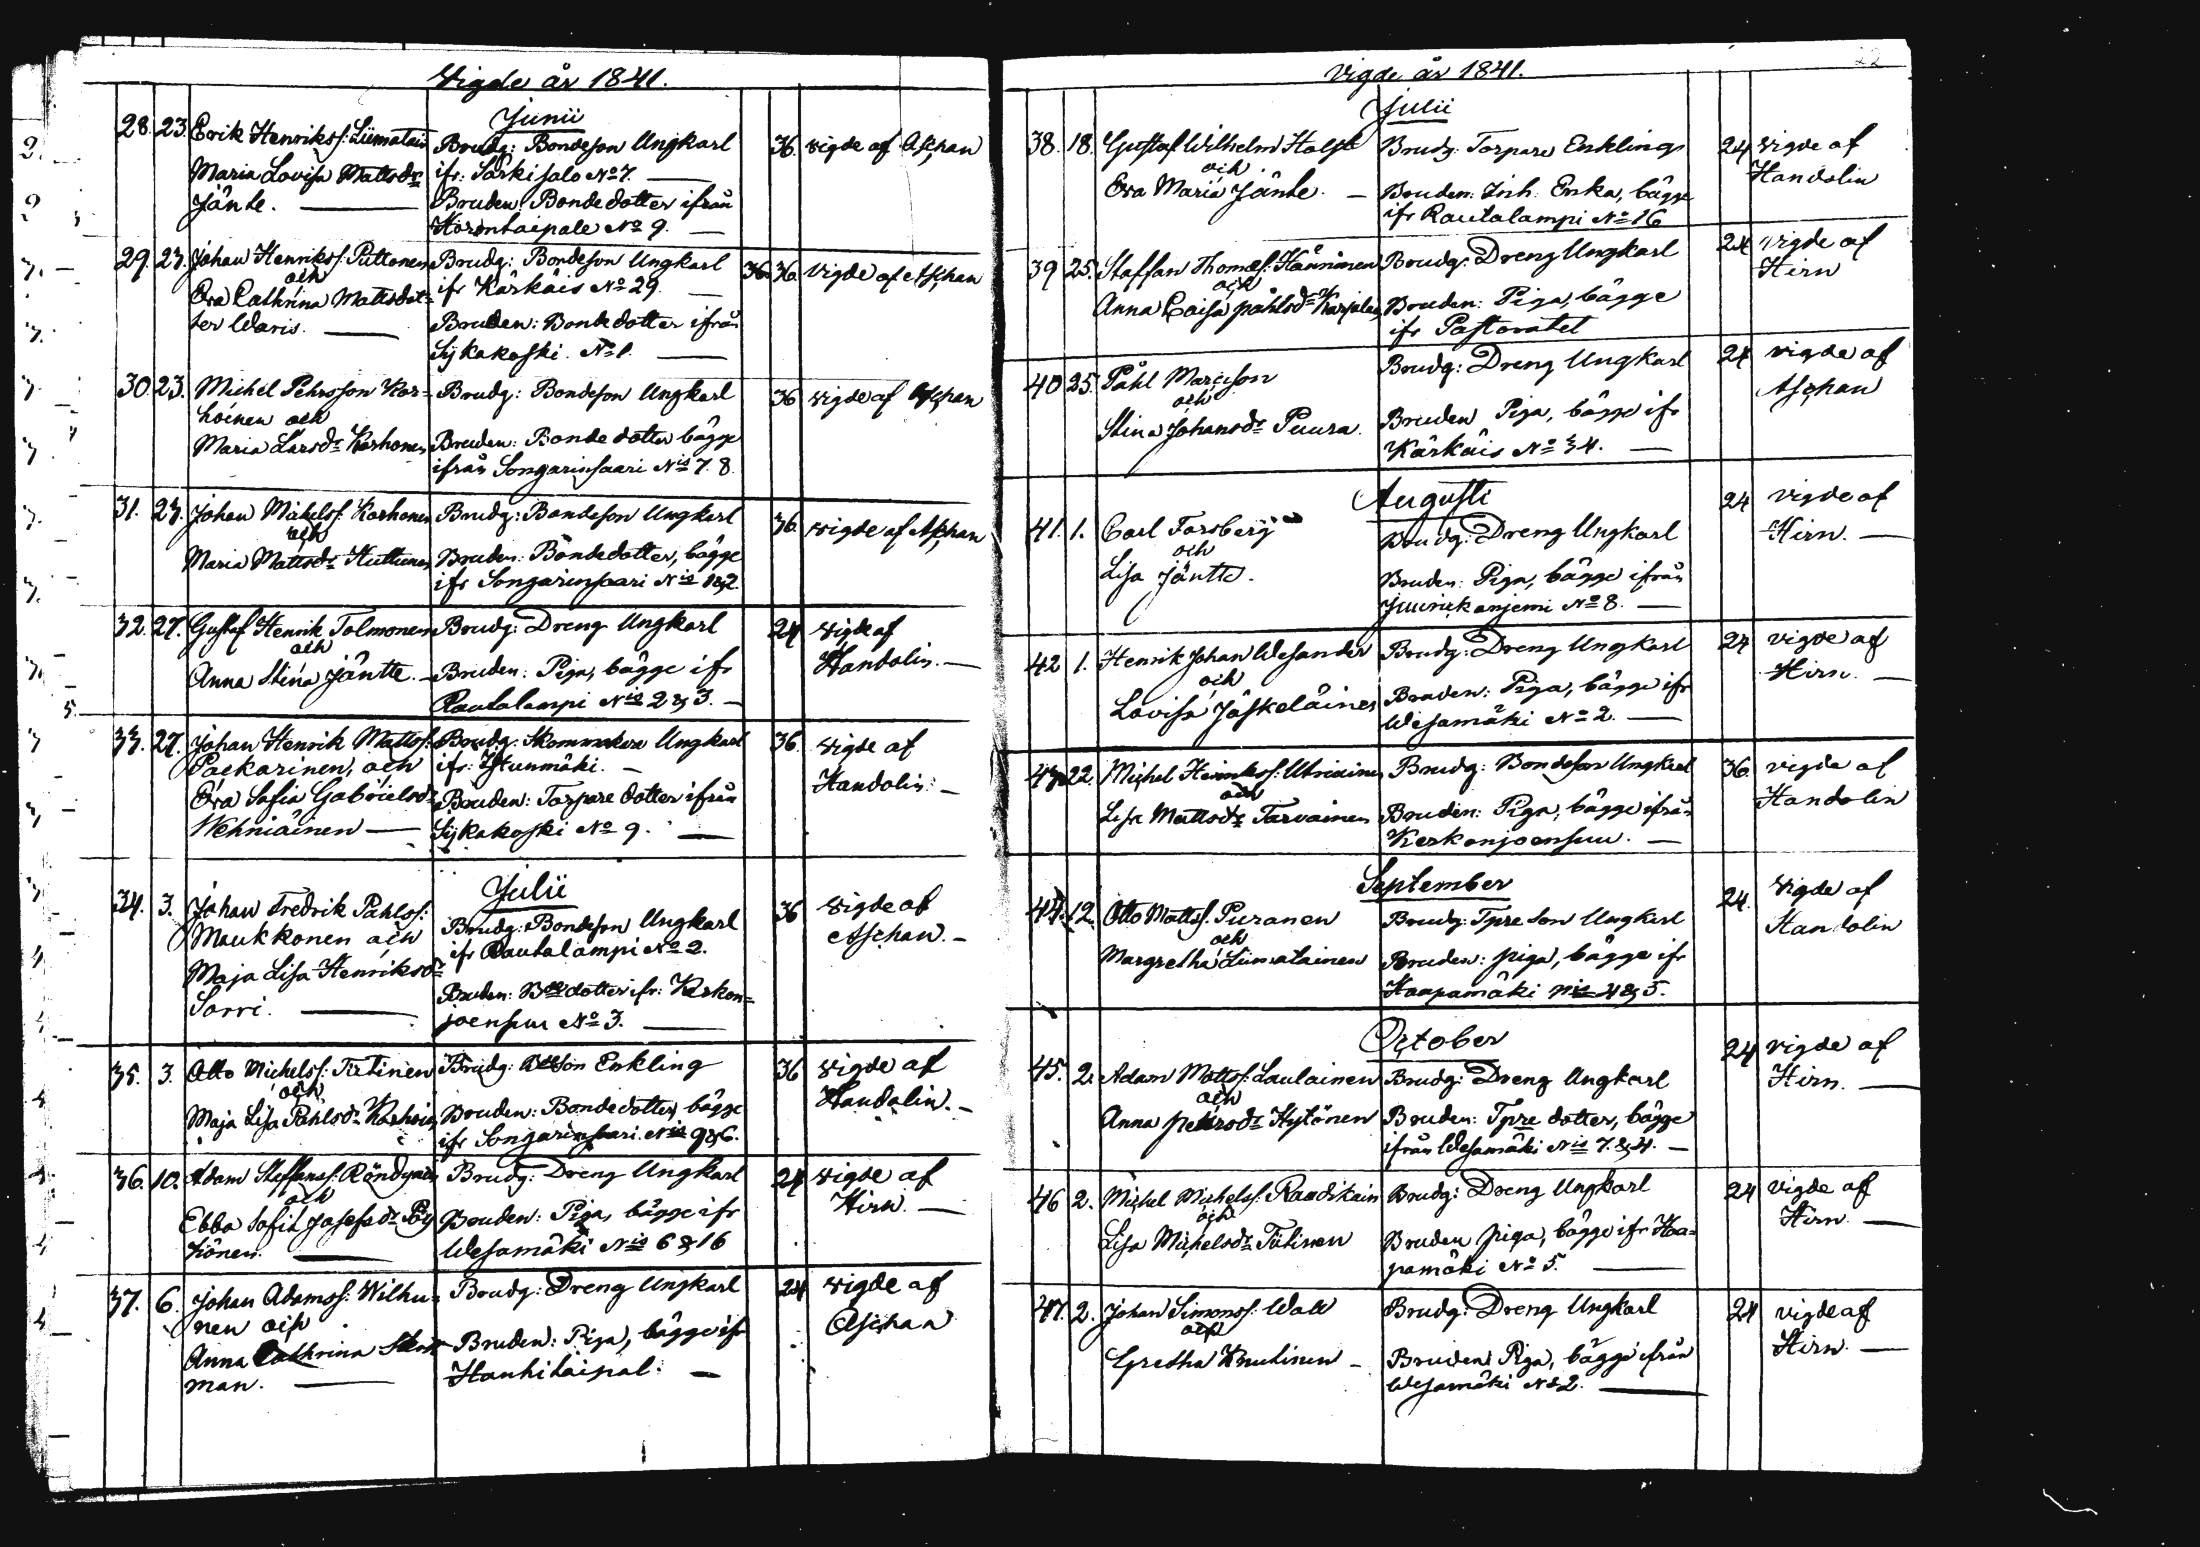 Vigde år 1841.
Junii
28. 23. Erik Henrikss: Liimatain Brudg: Bondeson Ungkarl 36. vigde af Aschan
Maria Lovisa Mattsdr ifr: Särkisalo No 7. —
Jänte. — Bruden: Bondedotter ifrån
Korontaipale No 9. —
29. 23. Johan Henrikss: Puttonen Brudg: Bondeson Ungkarl 36 36. vigde af Aschan
och ifr Kärkäis No 29. —
Eva Cathrina Mattsdot=
ter Waris. — Bruden: Bondedotter ifrån
Sykäkoski. No 1. —
30. 23. Michel Pehrsson Kor= Brudg: Bondeson Ungkarl 36 vigde af Aschan
hoinen och
Maria Larsdr Korhonen Bruden: Bonde dotter bägge
ifrån Songarinsaari Nis 7. 8.
31. 23. Johan Michelss: Korhonen Brudg: Bondeson Ungkarl 36. vigde af Aschan
och
Maria Mattsdr Huttunen Bruden: Bondedotter, bägge
ifr Songarinsaari Nis 1&2.
32. 27. Gustaf Henrik Tolmonen Brudg: Dreng Ungkarl 24 vigde af
och Handolin. —
Anna Stina Jäntte. — Bruden: Piga, bägge ifr
Rautalampi Nis 2 & 3. —
33. 27. Johan Henrik Mattss: Brudg: Skommakare Ungkarl 36. vigde af
Packarinen, och ifr: Istunmäki. — Handolin: —
Eva Sofia Gabrielsdr Bruden: Torpare dotter ifrån
Wehniäinen — Sykäkoski No 9. —
Julii
34. 3. Johan Fredrik Pahlss: Brudg: Bondeson Ungkarl 36 vigde af
Maukkonen och ifr Rautalampi No 2. Aschan. —
Maja Lisa Henriksdr Bruden: Bdedotter ifr: Kerkon=
Sorri. — joensuu No 3. —
35. 3. Otto Michelss: Tiitinen Brudg: Bdeson Enkling 36 vigde af
och Handolin. —
Maja Lisa Påhlsdr Korhoin Bruden: Bondedotter, bägge
ifr Songarinsaari. Nis 9&6.
36. 10. Adam Steffanss: Röndynen Brudg: Dreng Ungkarl 24 vigde af
och Hirn. —
Ebba Sofia Josefsdr Pöy Bruden: Piga, bägge ifr
hönen. — Wesamäki Nis 6 & 16
37. 6. Johan Adamss: Wilhu= Brudg: Dreng Ungkarl 24 vigde af
nen och Aschan
Anna Cathrina Bruden: Piga, bägge ifr
man. — Hanhitaipal: —
22
Vigde år 1841.
Julii
38. 18. Gustaf Wilhelm Holst Brudg: Torpare Enkling 24 vigde af
och Handolin
Eva Maria Jänte. — Bruden: Inh. Enka, bägge
ifr Rautalampi No 16
39 25. Staffan Thomæs: Hänninen Brudg: Dreng Ungkarl 24 vigde af
och Hirn
Anna Caisa påhlsdr Karjalai Bruden: Piga, bägge
ifr Pastoratet
40 25. Påhl Marcison Brudg: Dreng Ungkarl 24 vigde af
och Aschan
Stina Johansdr Puura. Bruden Piga, bägge ifr
Kärkäis No 34. —
Augusti
41. 1. Carl Forsberg Brudg: Dreng Ungkarl 24 vigde af
och Hirn. —
Lisa Jäntte. Bruden: Piga, bägge ifrån
Juurickaniemi No 8. —
42 1. Henrik Johan Wesander Brudg: Dreng Ungkarl 24 vigde af
och Hirn. —
Lovisa Jäskeläinen Bruden: Piga, bägge ifr
Wesamäki No 2. —
43 22. Michel Henrikss: Utriainen Brudg: Bondeson Ungkarl 36. vigde af
och Handolin
Lisa Mattsdr Tarvainen Bruden: Piga, bägge ifrån
Kerkonjoensuu. —
September
44. 12. Otto Mattss: Puranen Brudg: Tpre Son Ungkarl 24. vigde af
och Handolin
Margretha Liimatainen Bruden: piga, bägge ifr
Haapamäki Nis 4&5.
October
45. 2. Adam Mattss: Laulainen Brudg: Dreng Ungkarl 24 vigde af
och Hirn. —
Anna pehrsdr Hytönen Bruden: Tpre dotter, bägge
ifrån Wesamäki Nis 7. & 4. —
46 2. Michel Michelss: Raudikain Brudg: Dreng Ungkarl 24 vigde af
och Hirn. —
Lisa Michelsdr Tiitinen Bruden piga, bägge ifr Haa=
pamäki No 5. —
47. 2. Johan Simonss: Wall Brudg: Dreng Ungkarl 24 vigde af
och Hirn. —
Gretha Knutinen — Bruden Piga, bägge ifrån
Wesamäki No 2. —